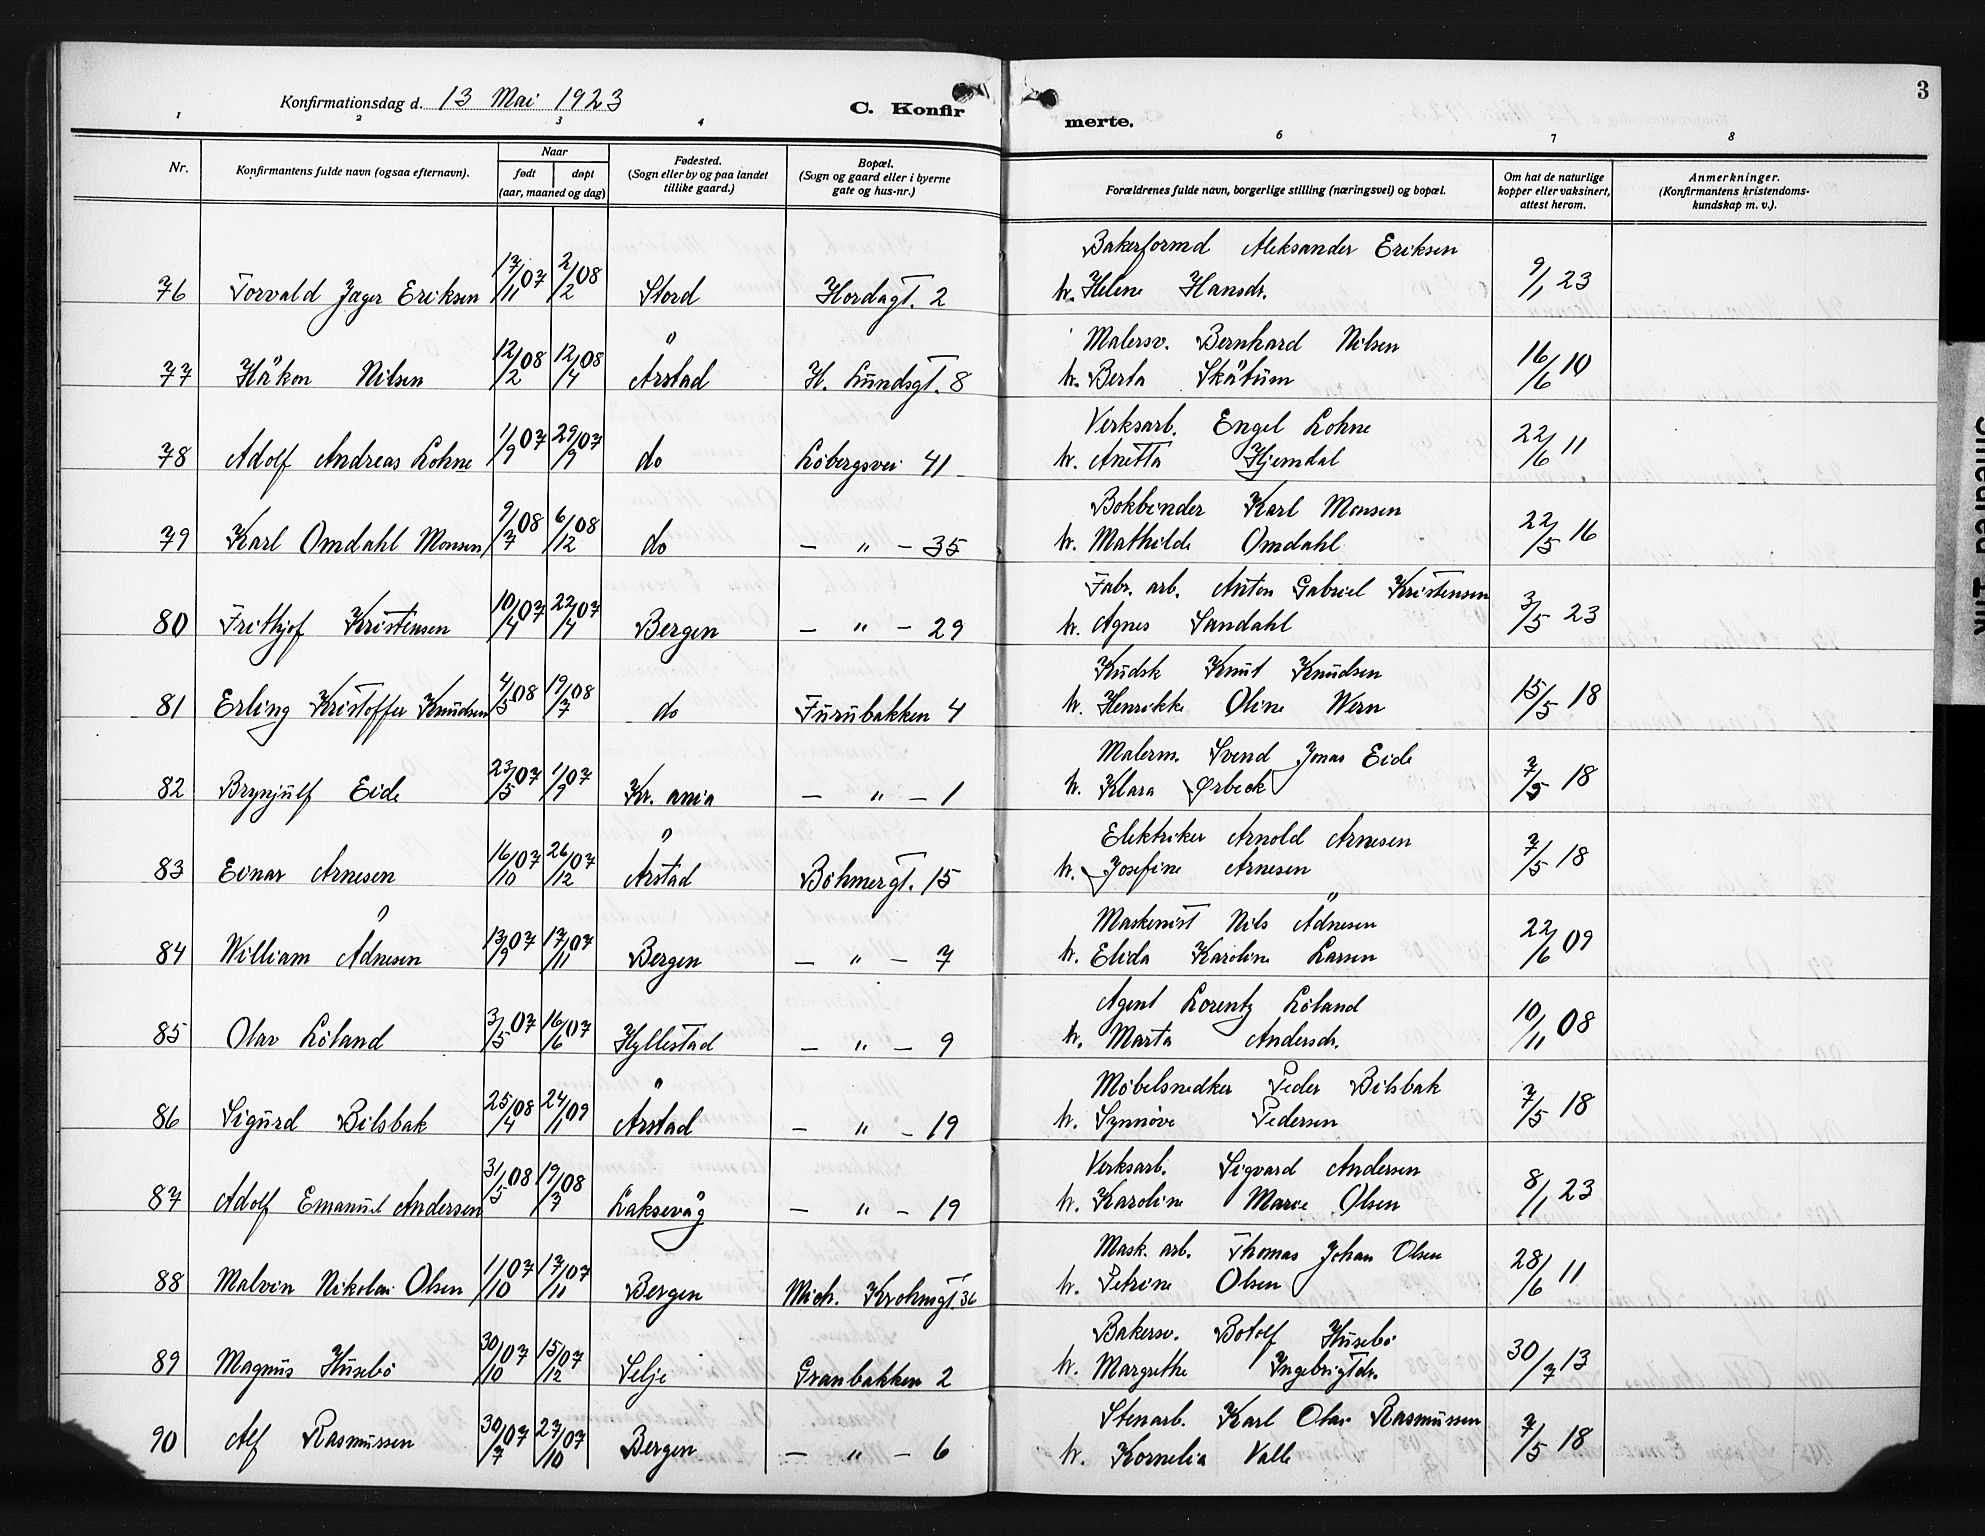 3
Konfirmationsdag d. 13 Mai 1923 C. Konfirmerte.
1 2 3 4 6 7 8
Nr. Konfirmantens fulde navn (ogsaa efternavn). Naar født døpt (aar, maaned og dag) Fødested. (Sogn eller by og paa landet tillike gaard.) Bopæl. (Sogn og gaard eller i byerne gate og hus-nr.) Forældrenes fulde navn, borgerlige stilling (næringsvei) og bopæl. Om hat de naturlige kopper eller vaksinert, attest herom. Anmerkninger. (Konfirmantens kristendomskundskap m. v.).
Bakerformd Aleksander Eriksen
76 Torvald Jager Eriksen 17/11 07 2/2 08 Stord Hordagt. 2 h. Helene Hansdr. 9/1 23
Malersv. Bernhard Nilsen
77 Håkon Nilsen 12/2 08 12/4 08 Årstad H. Lundsgt. 8 h. Berta Skåtum 16/6 10
Verksarb. Engel Lohne
78 Adolf Andreas Lohne 1/9 07 29/9 07 do Løbergsvei 41 h. Anetta Hjemdal 22/6 11
Bokbinder Karl Monsen
79 Karl Omdahl Monsen 9/7 08 6/12 08 do — " — 35 h. Mathilde Omdahl 22/5 16
Fabr. arb. Anton Gabriel Kristensen
80 Frithjof Kristensen 10/4 07 22/4 07 Bergen — " — 29 h. Agnes Sandahl 3/5 23
Kudsk Knut Knudsen
81 Erling Kristoffer Knudsen 4/5 08 19/7 08 do Furubakken 4 h. Henrikke Oline Wern 15/5 18
Malerm. Svend Jonas Eide
82 Brynjulf Eide 23/5 07 1/9 07 Kr. ania — " — 1 h. Klara Ørbeck 7/5 18
Elektriker Arnold Arnesen
83 Einar Arnesen 16/10 07 26/12 07 Årstad Böhmergt. 15 h. Josefine Arnesen 7/5 18
Maskenist Nils Ådnesen
84 William Ådnesen 13/9 07 17/11 07 Bergen — " — 7 h. Elida Karoline Larsen 22/6 09
Agent Lorentz Løland
85 Olav Løland 3/5 07 16/6 07 Hyllestad — " — 9 h. Marta Andersdr. 10/11 08
Møbelsnedker Peder Bilsbak
86 Sigurd Bilsbak 25/4 08 24/1 09 Årstad — " — 19 h. Synnøve Pedersen 7/5 18
Verksarb. Sigvard Andersen
87 Adolf Emanuel Andersen 31/5 08 19/7 08 Laksevåg — " — 19 h. Karoline Marie Olsen 8/1 23
Mask. arb. Thomas Johan Olsen
88 Malvin Nikolai Olsen 1/10 07 17/11 07 Bergen Mich. Krohnsgt. 36 h. Petrine Olsen 28/6 11
Bakersv. Botolf Husebø
89 Magnus Husebø 30/10 07 15/12 07 Selje Granbakken 2 h. Margrethe Ingebrigtdr. 30/7 13
Stenarb. Karl Olav Rasmussen
90 Alf Rasmussen 30/7 07 27/10 07 Bergen — " — 6 h. Kornelia Valle 7/5 18